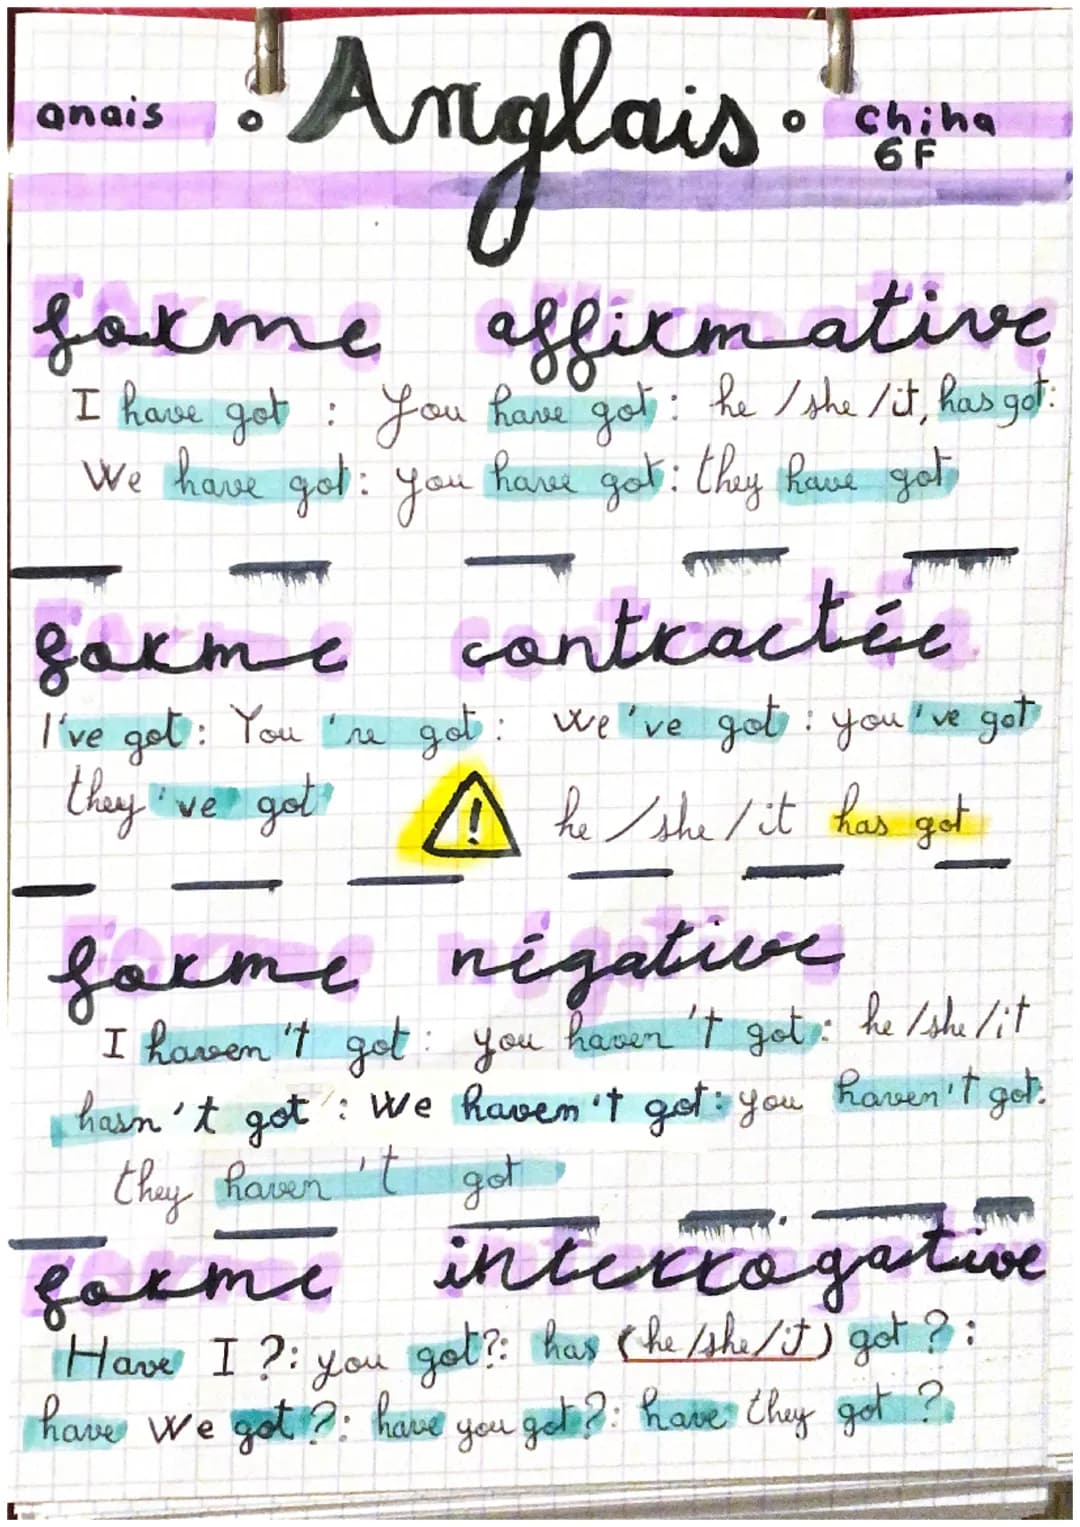 anais • Anglais • Chiha
6F
forme affirmative
I have got : You have got : he / she / it, has got :
We have got : you have got : they have got
forme contractée
I've got : You 're got : We 've got : you 've got
they 've got ! he / she / it has got
forme négative
I haven't got : you haven't got : he / she / it
hasn't got : We haven't got : you haven't got :
they haven't got
forme interrogative
Have I ? : you got ? : has (he /she / it) got ? :
have We got ? : have you got ? : have they got ?